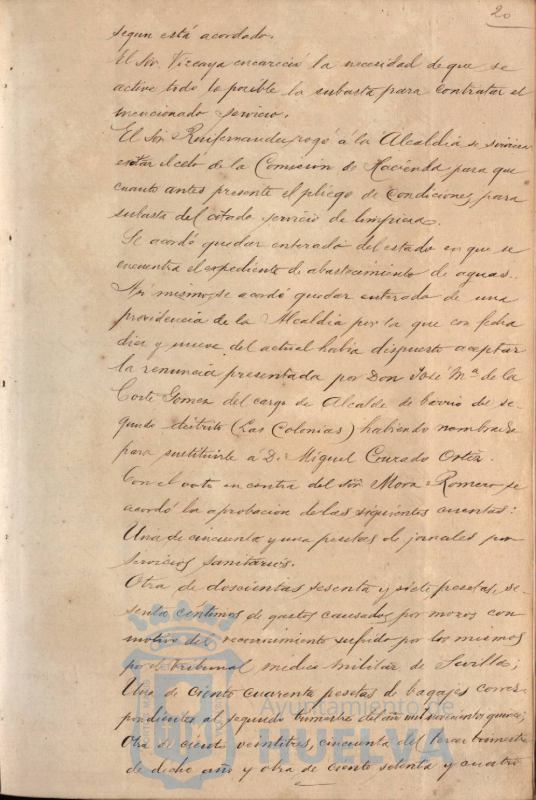 20
segun está acordado.
El Sor. Vizcaya encareció la necesidad de que se
active todo lo posible la subasta para contratar el
mencionado servicio.
El Sor Ruifernandez rogó á la Alcaldia se sirviera
exitar el celo de la Comisión de Hacienda para que
cuanto antes presente el pliego de condiciones, para
subasta del citado servicio de limpieza.
Se acordó quedar enterado del estado en que se
encuentra el expediente de abastecimiento de aguas.
Asi mismo, se acordó quedar enterado de una
providencia de la Alcaldia por la que con fecha
diez y nueve del actual habia dispuesto aceptar
la renuncia presentada por Don José Mª de la
Corte Gomez del cargo de Alcalde de barrio del se-
gundo distrito (Las Colonias) habiendo nombrado
para sustituirle á D. Miguel Cruzado Orta.
Con el voto en contra del Sor. Mora Romero se
acordó la aprobacion de las siguientes cuentas:
Una de cincuenta y una pesetas de jornales por
servicios sanitarios.
Otra de doscientas sesenta y siete pesetas, se-
senta centimos de gastos causados por mozos con
motivo del reconocimiento sufrido por los mismos
por el tribunal medico militar de Sevilla;
Una de ciento cuarenta pesetas de bagajes corres-
pondientes al segundo trimestre del año mil novecientos quince;
Otra de ciento veintitres, cincuenta del tercer trimestre
de dicho año y otra de ciento setenta y cuatro
Ayuntamiento de
HUELVA